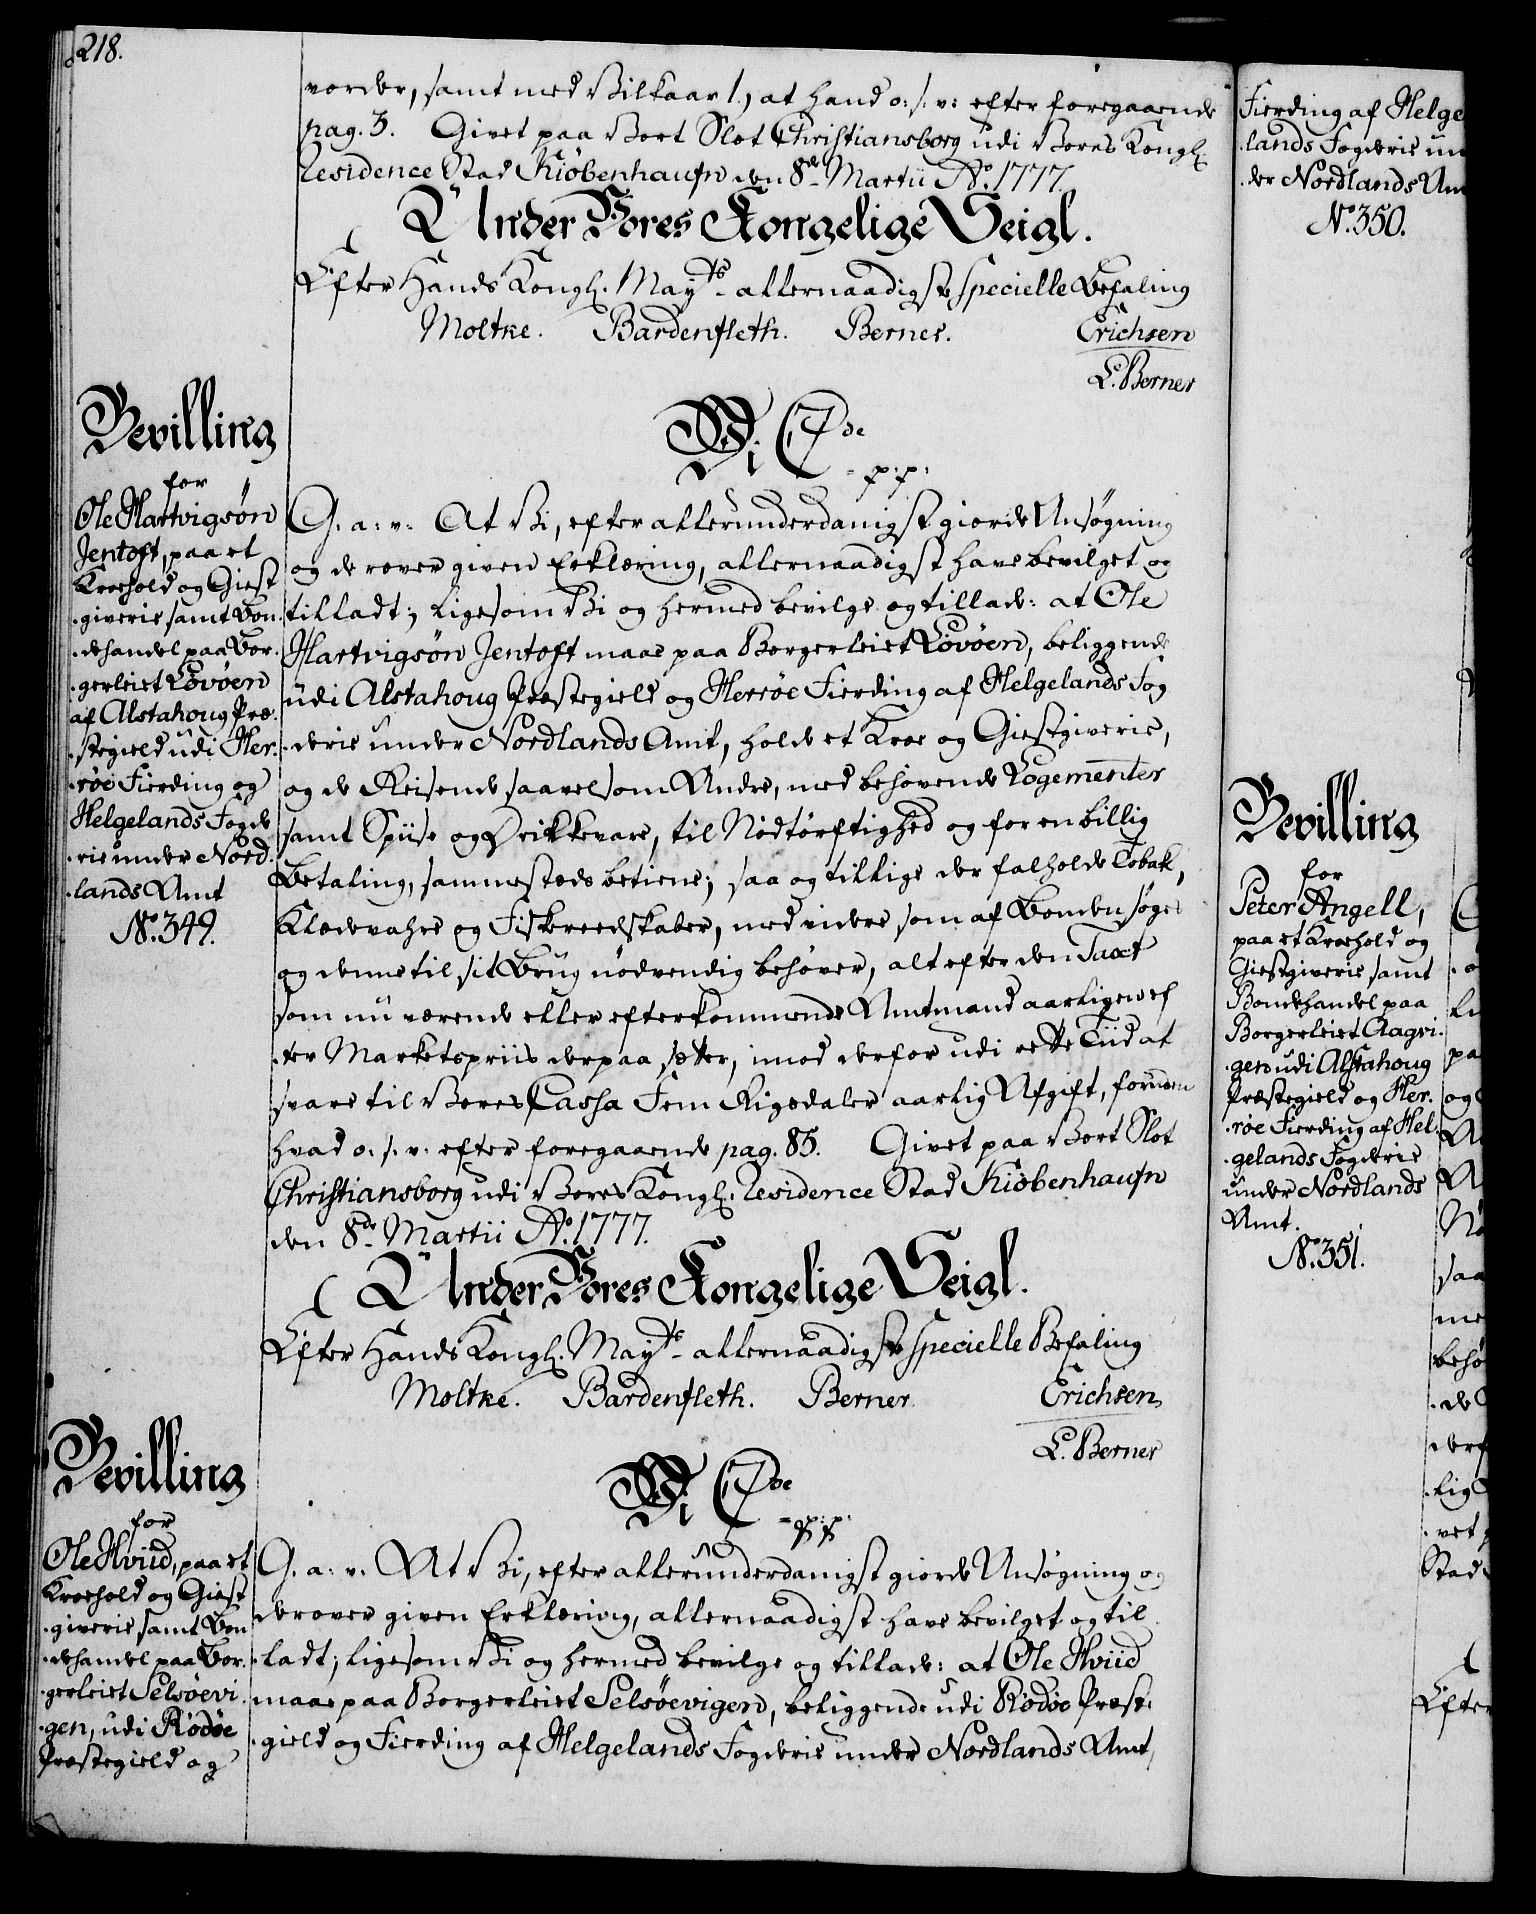 218.
vorder, samt med Vilkaar /., at hand o: s: v: efter foregaaende
pag. 3. Givet paa Vort Slot Christiansborg udi Vores Kongl.
Residence Stad Kiöbenhaufn den 8de Martii Ao. 1777.
Under Vores Kongelige Seigl.
Efter Hands Kongl. Mayts allernaadigste specielle Befaling
Moltke. Bardenfleth. Berner. Erichsen
L. Berner
Bevilling
for
Ole Hartvigsön
Jentoft, paa et
Kroehold og Giest
giverie samt Bon
dehandel paa Bor
gerleiet Lövöen
af Alstahoug Præ
stegield udi Her
röe Fierding og
Helgelands Fogde
rie under Nord
lands Amt
No. 349.
Vi C 7de
p: p:
G. a: v: At Vi, efter allerunderdanigst giorde Ansøgning
og derover given Erklæring, allernaadigst have bevilget og
tilladt; ligesom Vi og hermed bevilge og tillade: at Ole
Hartvigsön Jentoft maae paa Borgerleiet Lövöen, beliggende
udi Alstahoug Præstegield og Herröe Fierding af Helgelands Fog
derie under Nordlands Amt, holde et Kroe og Giestgiverie,
og de Reisende saavelsom Andre, med behøvende Logementer
samt Spiise og Drikkevare, til Nödtörftighed og for en billig
Betaling, sammesteds betiene; saa og tillige der falholde Tobak,
Klædevahre og Fiskereedskaber, med videre som af Bonden søges
og denne til sit Brug nødvendig behøver, alt efter den Taxt
som nu værende eller efterkommende Amtmand aarligen ef
ter Marketspriis derpaa sætter, imod derfor udi rette Tiid at
svare til Vores Cassa Fem Rigsdaler aarlig Afgift, foruden
hvad o. s. v. efter foregaaende pag. 85. Givet paa Vort Slot
Christiansborg udi Vores Kongl. Residence Stad Kiöbenhaufn
den 8de Martii Ao. 1777.
Under Vores Kongelige Seigl.
Efter Hands Kongl. Mayts allernaadigste specielle Befaling
Moltke. Bardenfleth. Berner Erichsen
L. Berner
Bevilling
for
Ole Hviid, paa et
Kroehold og Giest
giverie samt Bon
dehandel paa Bor
gerleiet Selsöevi
gen, udi Rödöe
Præstegield og
Vi C 7de
p: p:
G. a. v. At Vi, efter allerunderdanigst giorde Ansøgning og
derover given Erklæring, allernaadigst have bevilget og til
ladt; ligesom Vi og hermed bevilge og tillade: at Ole Hviid
maae paa Borgerleiet Selsöevigen, beliggende udi Rödöe Præste
gield og Fierding af Helgelands Fogderie under Nordlands Amt,
Fierding af Helge
lands Fogderie un
der Nordlands Am
No. 350.
Bevilling
for
Peter Angell,
paa et Kroehold og
Giestgiverie samt
Bondehandel paa
Borgerleiet Aagvi
gen udi Alstahoug
Præstegield og Her
röe Fierding af Hel
gelands Fogderie
under Nordlands
Amt.
No. 351.
pa
og
Nö
saa
me
behø
de
derf
lig
vet
Stad
Efter